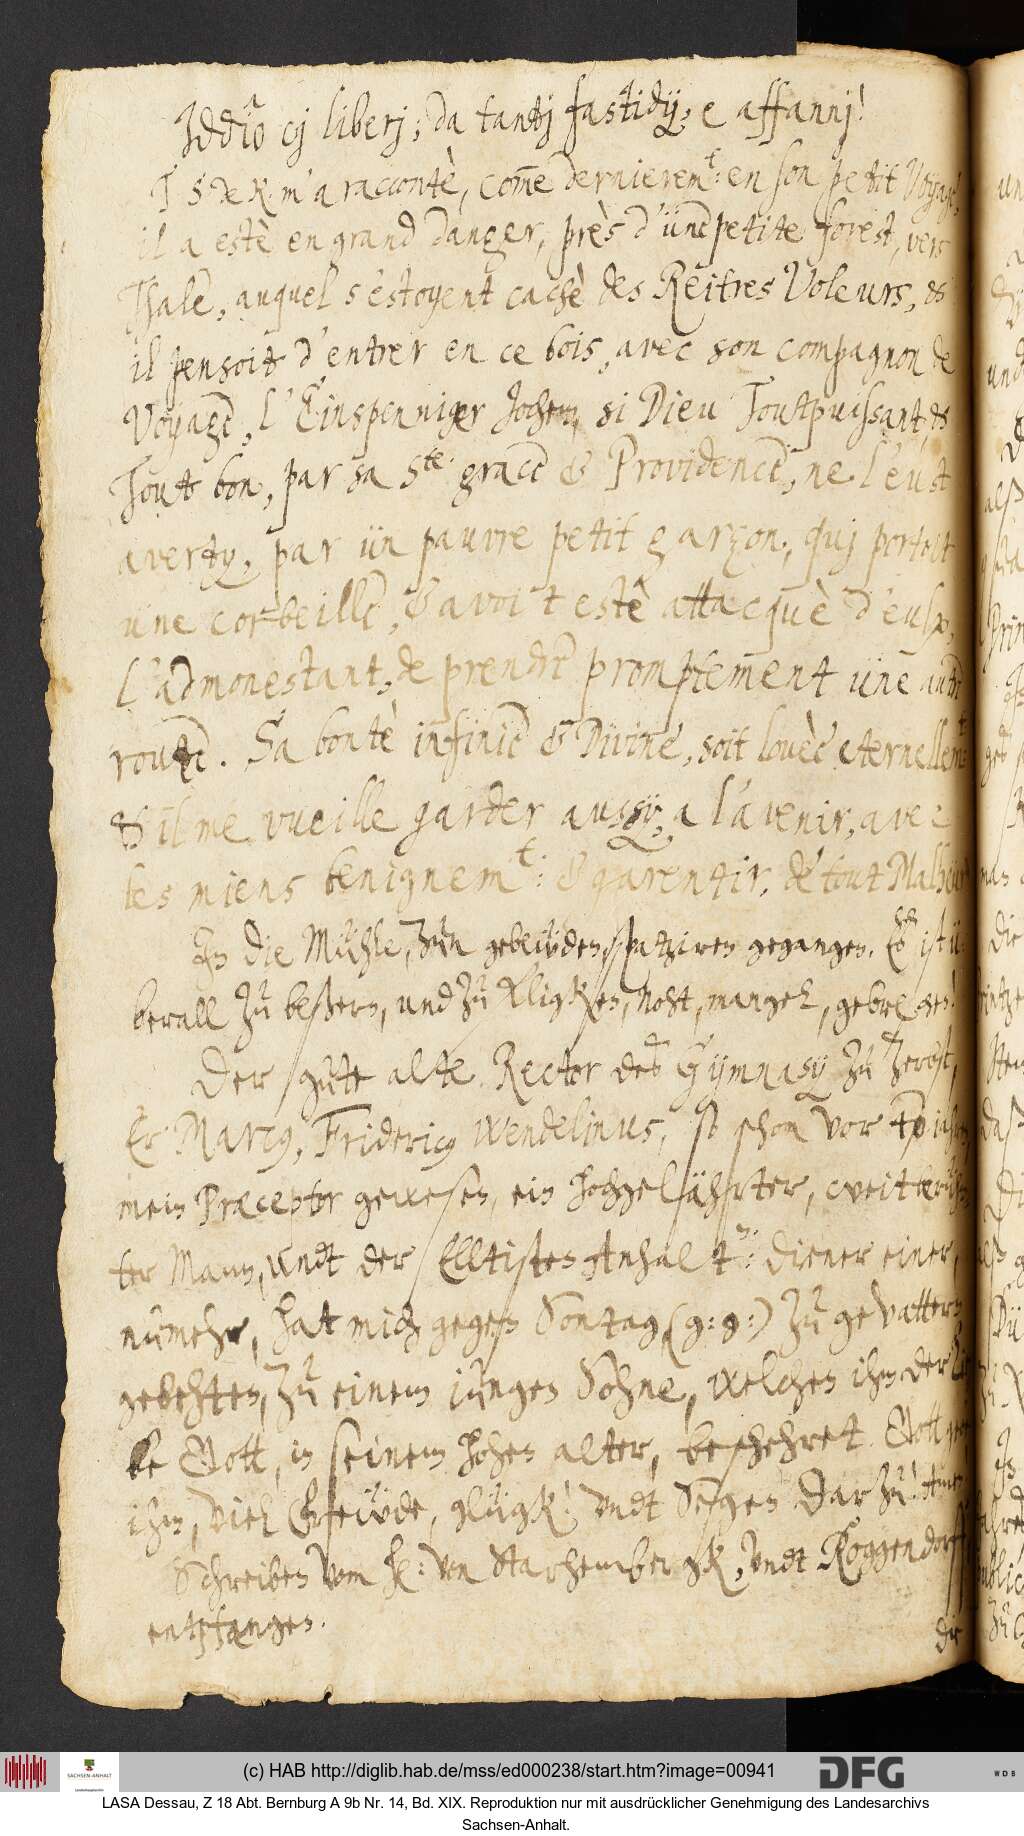 Iddio cj liberj, da tantj fastidij, e affannj!
T S de K. m'a raccontè, come dernierem.t en son petit Voyage,
il a estè en grand danger, près d'üne petite forest, vers
Thale, auquel s'estoyent cachè des Reitres Voleurs, &
il pensoit d'entrer en ce bois, avec son compagnon de
Voyage, l'Einspenniger Jochem, si Dieu Toutpuissant &
Tout bon, par sa Ste. grace & Providence, ne l'eust
averty, par ün pauvre petit garzon, quj portoit
üne corbeille, & avoit estè attacquè d'eulx,
l'admonestant, de prendre promptement üne autre
routte. Sa bontè infinie & Divine, soit louèe eternellem.t
& il me vueille garder aussy, a l'avenir, avec
les miens benignem.t: & garentir, de tout Malheur
In die Mühle, zun gebeüden, spatziren gegangen. Es ist ü-
berall zu beßern, und zu kligken, noht, mangel, gebrechen!
Der gute alte Rector des Gymnasij zu Zerbst,
Er Marcus, Fridericus Wendelinus, so schon vor iahren
mein Præceptor gewesen, ein hochgelährter, weitberühm-
ter Mann, undt der Elltisten Anhalt: diener einer,
numehr, hat mich gegen Sontag (g: g:) zu gevattern
gebehten, zu einem iungen Sohne, welchen ihm der lie-
be Gott, in seinem hohen alter, beschehret. Gott gebe
ihm, viel Erfreüde, glügk! undt Segen darzu! Amen
Schreiben vom H: von Starhembergk, undt Roggendorff
entpfangen.
die
(c) HAB http://diglib.hab.de/mss/ed000238/start.htm?image=00941
SACHSEN-ANHALT
DFG
WDB
LASA Dessau, Z 18 Abt. Bernburg A 9b Nr. 14, Bd. XIX. Reproduktion nur mit ausdrücklicher Genehmigung des Landesarchivs
Sachsen-Anhalt.